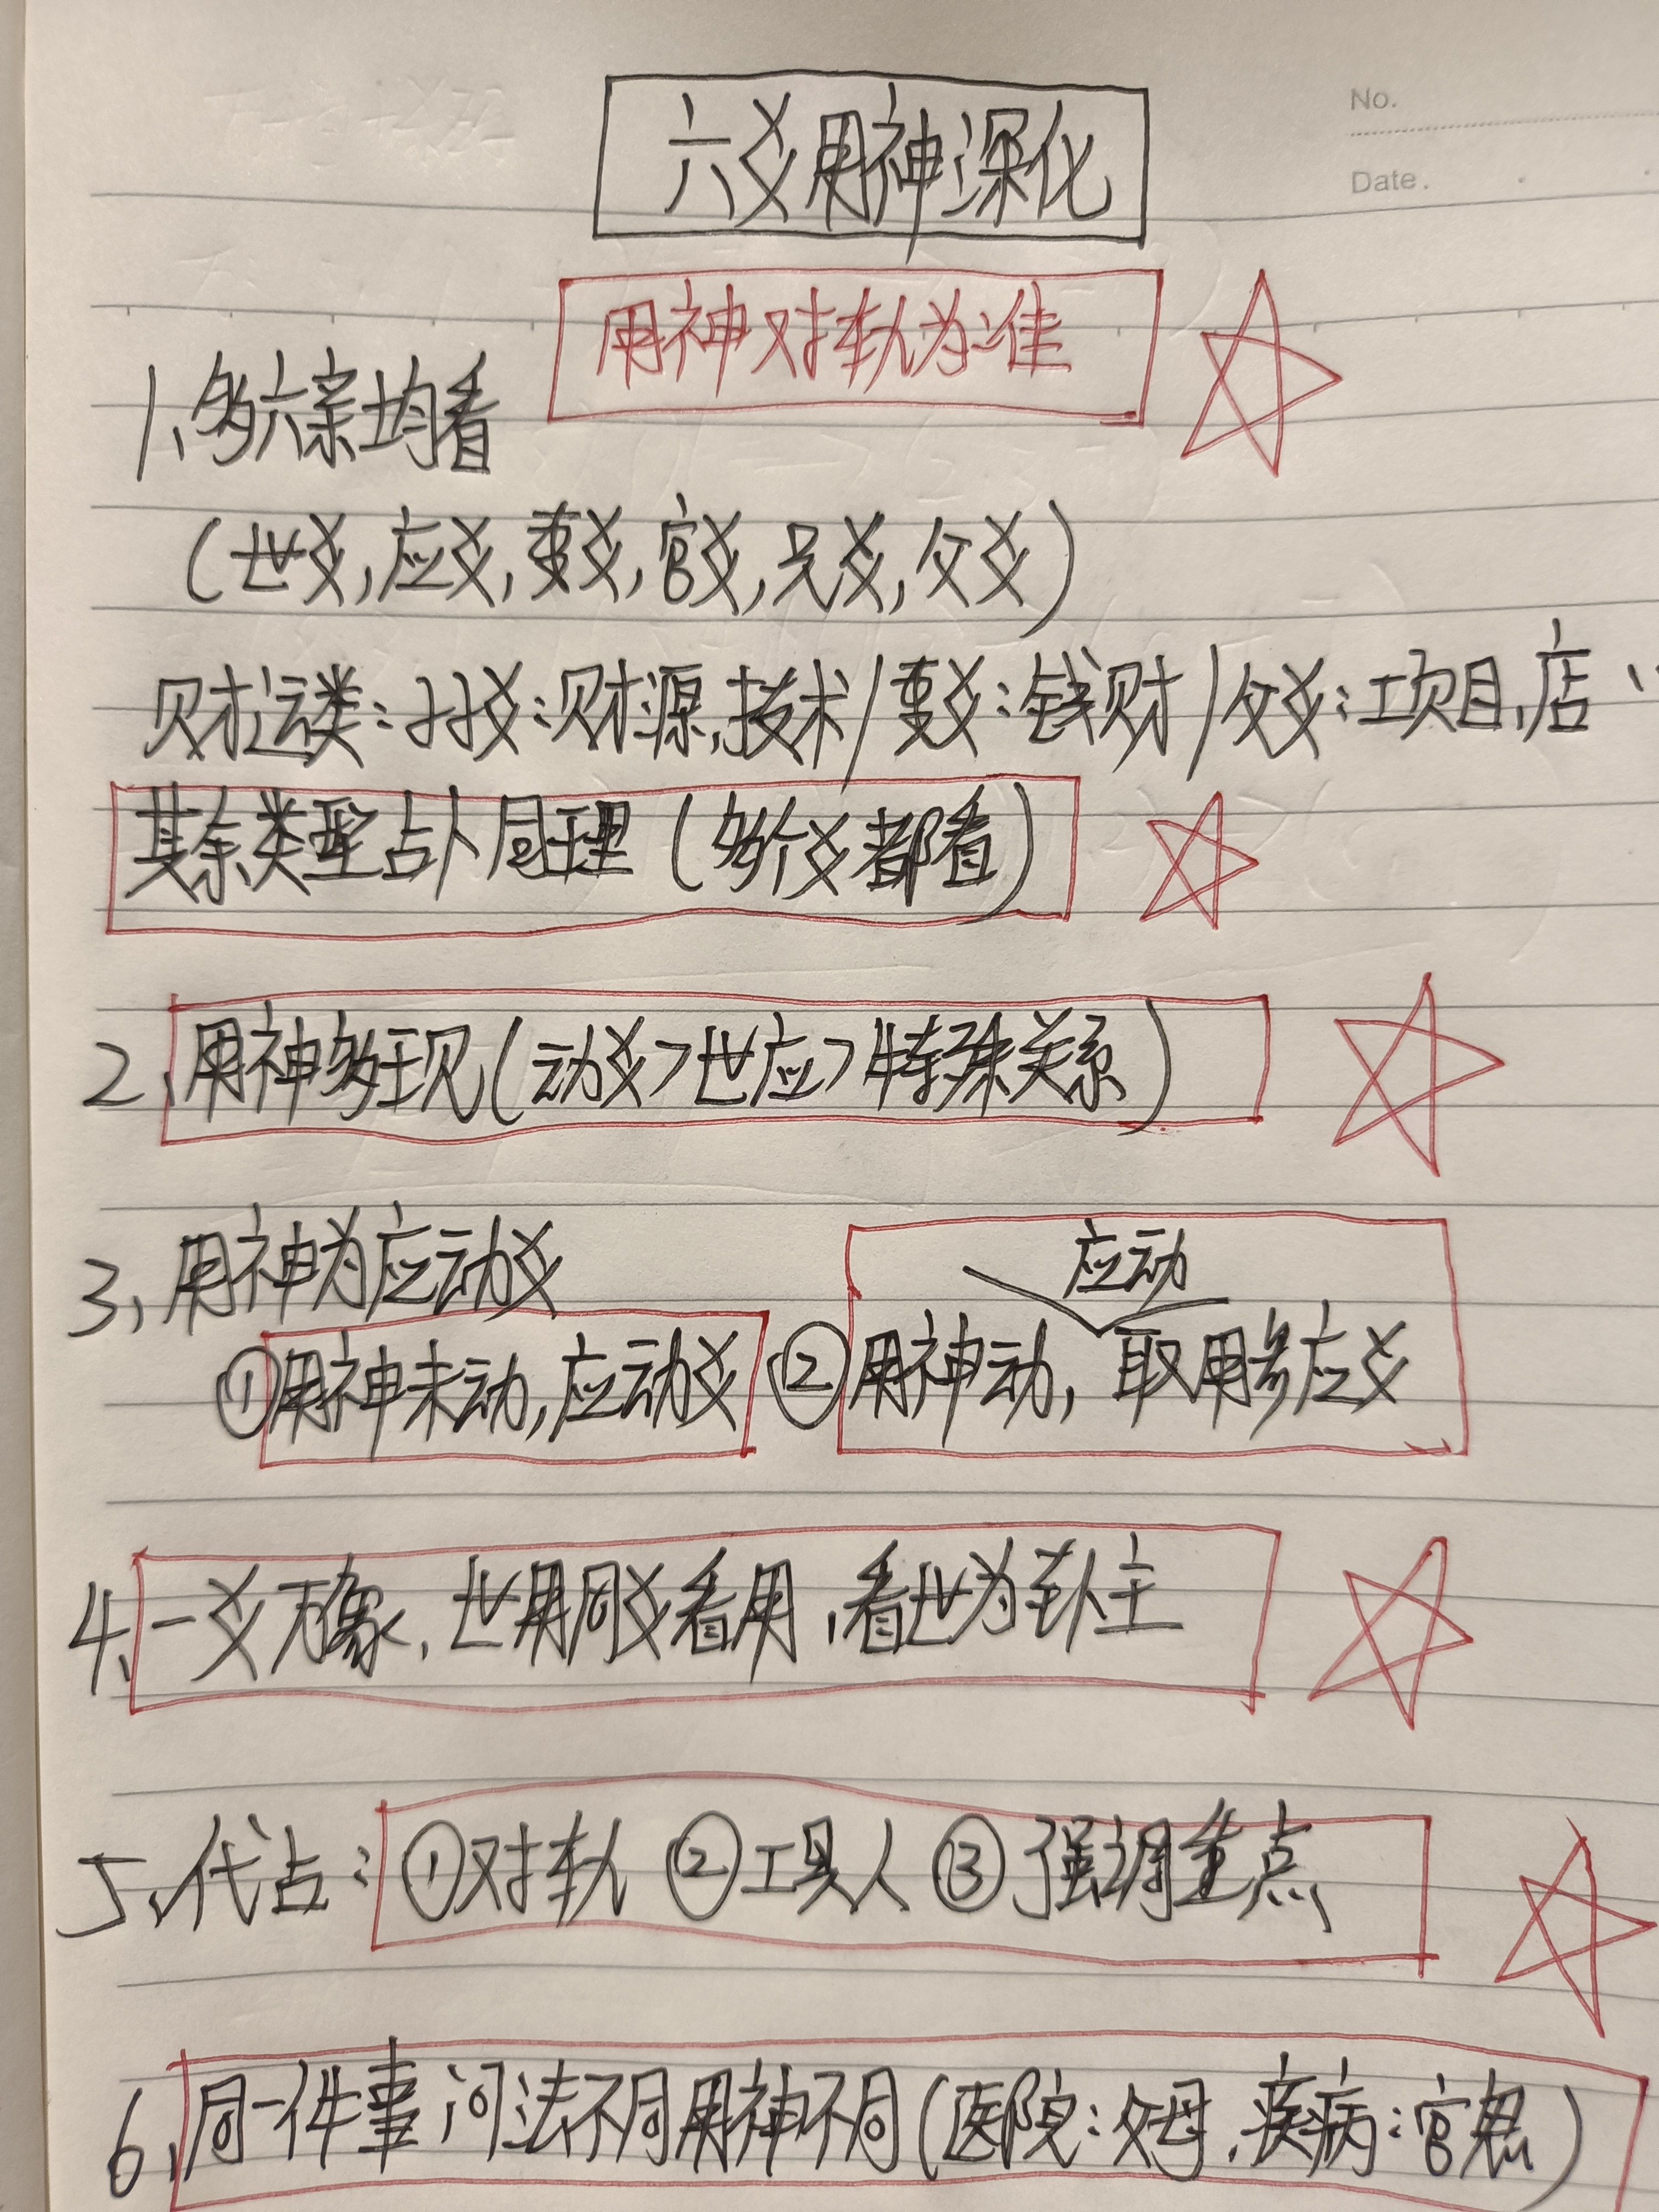 No.
六爻用神深化
Date.
用神对轨为准
1、多六亲均看
(世爻,应爻,妻爻,官爻,兄爻,父爻)
财运类:子爻:财源,技术/妻爻:钱财/父爻:工项目,店
其余类型占卜同理(多个爻都看)
2、用神多现(动爻>世应>特殊关系)
3、用神为应动爻
应动
①用神未动,应动爻 ②用神动,取用参应爻
4、一爻万象,世用同爻看用,看世为卦主
5、代占:①对轨 ②工具人 ③强调重点
6、同一件事问法不同用神不同(医院:父母,疾病:官鬼)